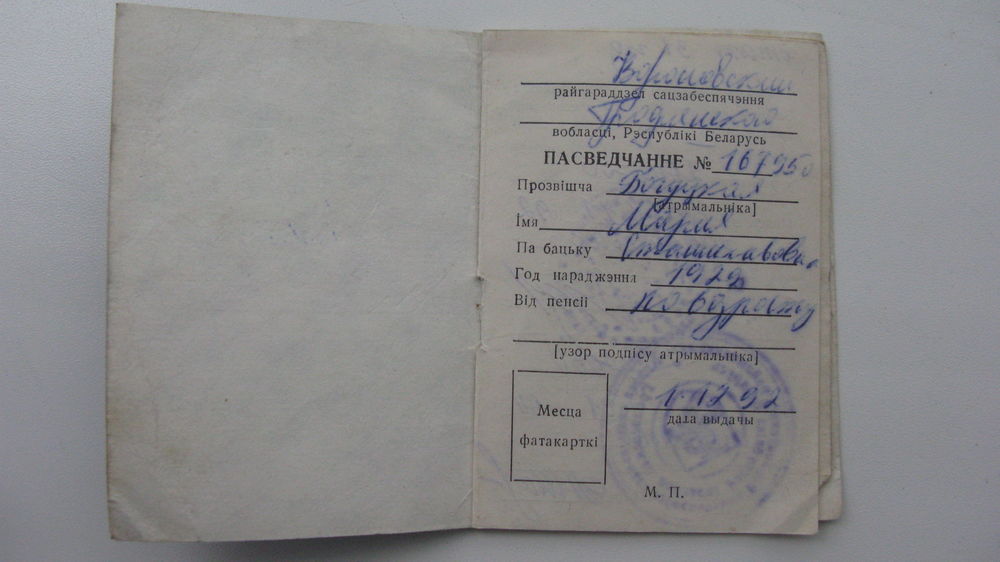 Вороновский
райгараддзел сацзабеспячэння
Гродненской
вобласці, Рэспублікі Беларусь
ПАСВЕДЧАННЕ № 167950
Прозвішча
[атрымальніка]
Імя Мария
Па бацьку
Год нараджэння 1929
Від пенсіі по возрасту
[узор подпісу атрымальніка]
Месца
фатакарткі
1. 12 92
дата выдачы
М. П.